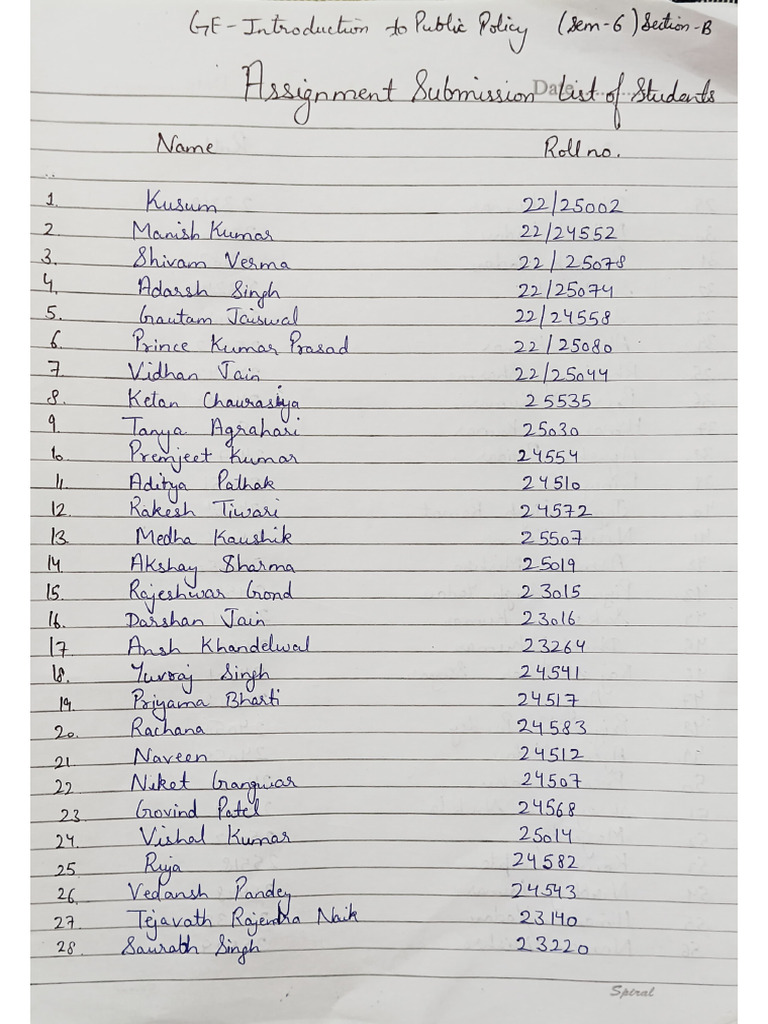 GE - Introduction to Public Policy (Sem-6) Section-B
Date
Assignment Submission List of Students
Name Roll no.
1. Kusum 22/25002
2. Manish Kumar 22/24552
3. Shivam Verma 22/25078
4. Adarsh Singh 22/25074
5. Gautam Jaiswal 22/24558
6. Prince Kumar Prasad 22/25080
7. Vidhan Jain 22/25044
8. Ketan Chaurasiya 25535
9. Tanya Agrahari 25030
10. Premjeet Kumar 24554
11. Aditya Pathak 24510
12. Rakesh Tiwari 24572
13. Medha Kaushik 25507
14. Akshay Sharma 25019
15. Rajeshwar Gond 23015
16. Darshan Jain 23016
17 Ansh Khandelwal 23264
18. Yuvraj Singh 24541
19. Priyama Bharti 24517
20. Rachana 24583
21 Naveen 24512
22 Niket Gangwar 24507
23 Govind Patel 24568
24. Vishal Kumar 25014
25 Ruja 24582
26 Vedansh Pandey 24543
27 Tejavath Rajendra Naik 23140
28 Saurabh Singh 23220
Spiral